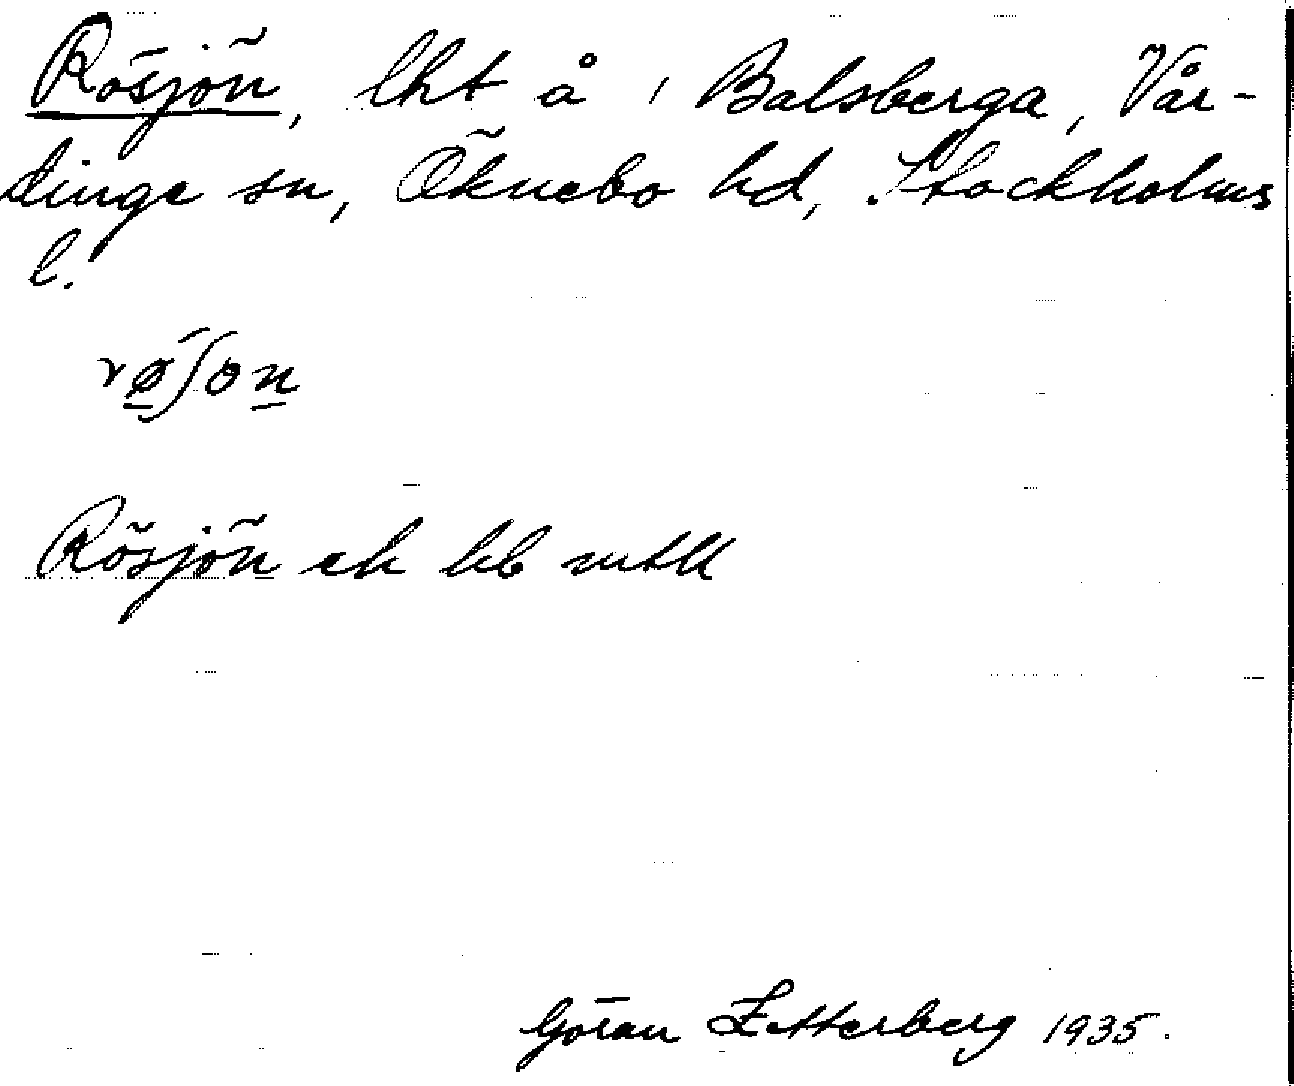 Rösjön, lht å i Balsberga, Vår-
dinge sn, Öknebo hd, Stockholms
l.
Rösjön ek hb mtll
Göran Zetterberg 1935.